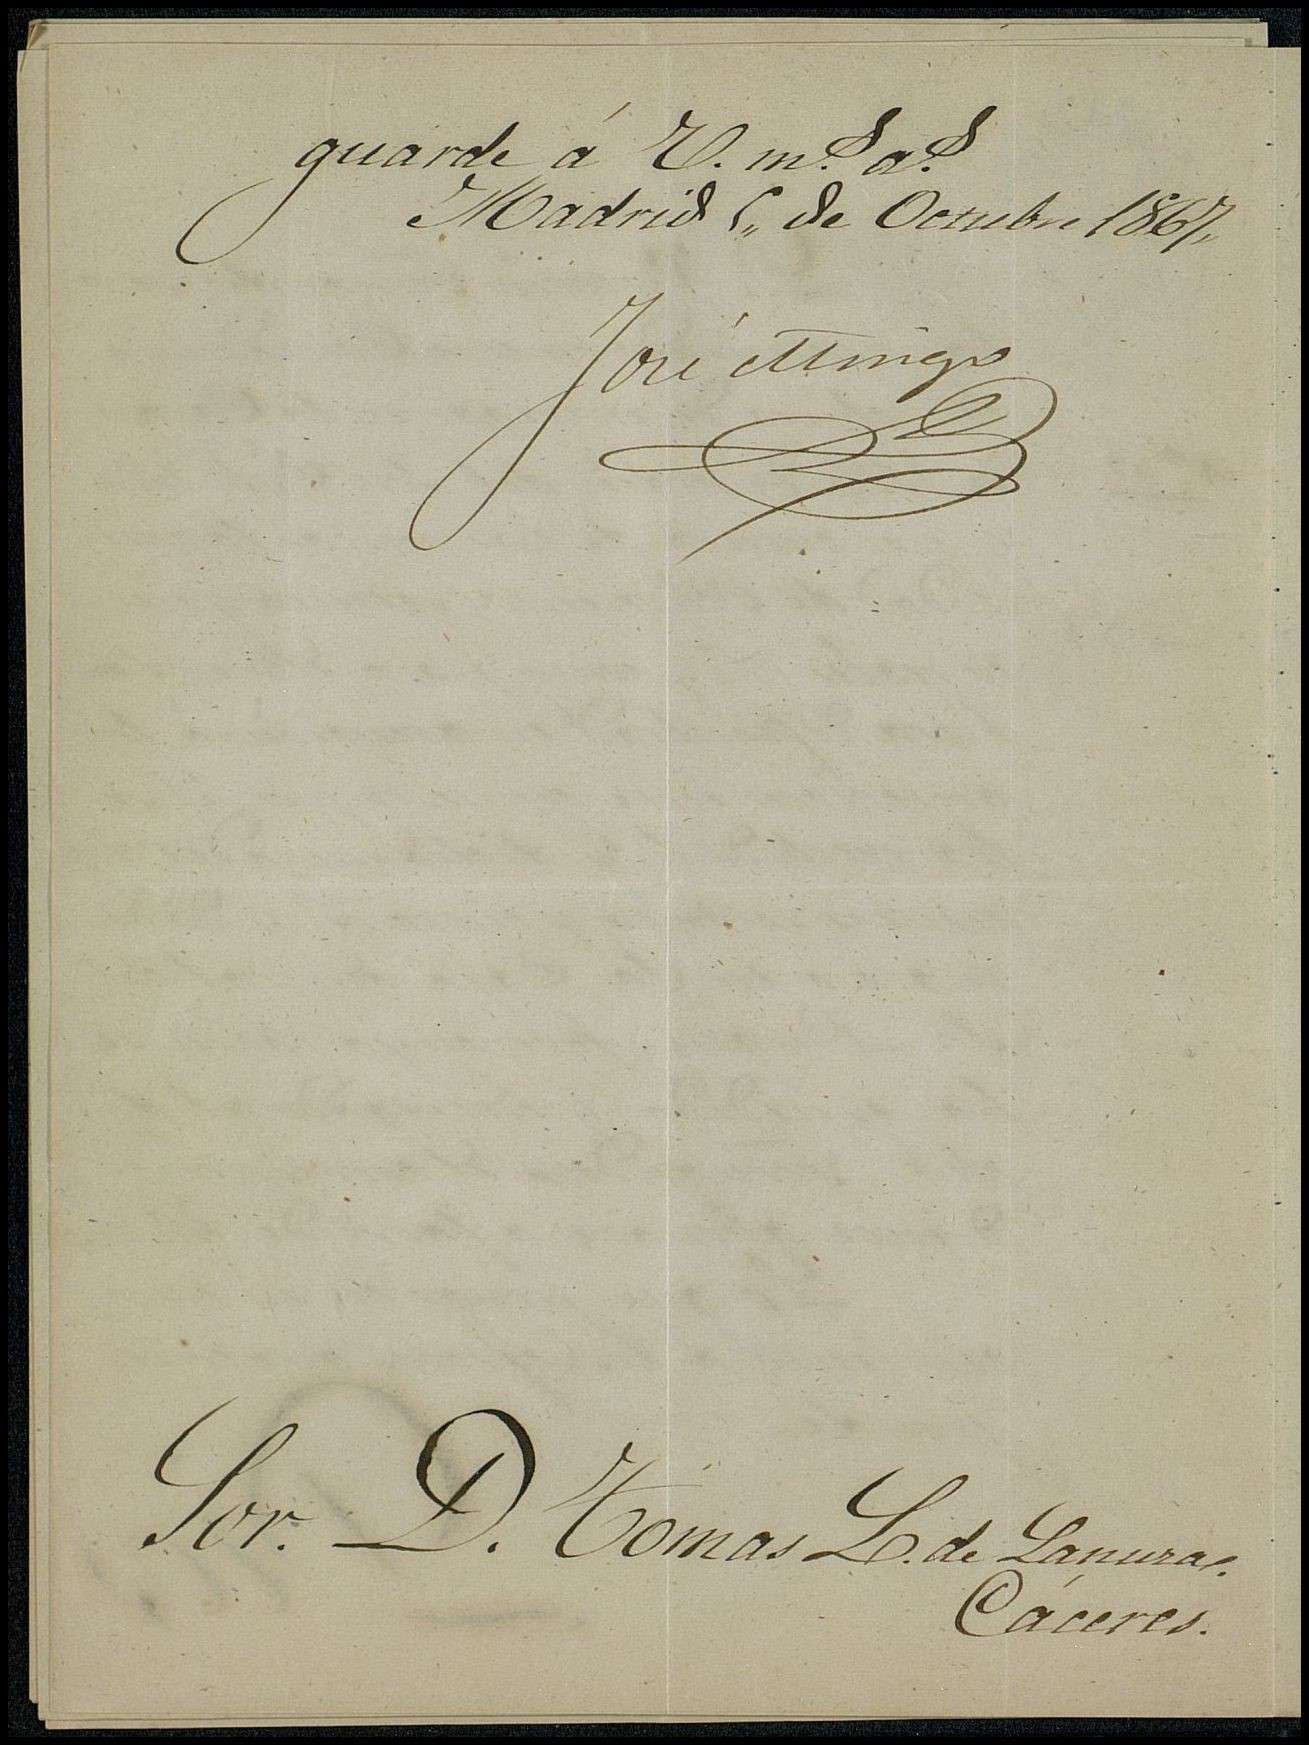 guarde á V. m.s a.s
Madrid 5,, de Octubre 1867,,
José Mingo
Sor. D. Tomas L. de Lanuza.
Cáceres.